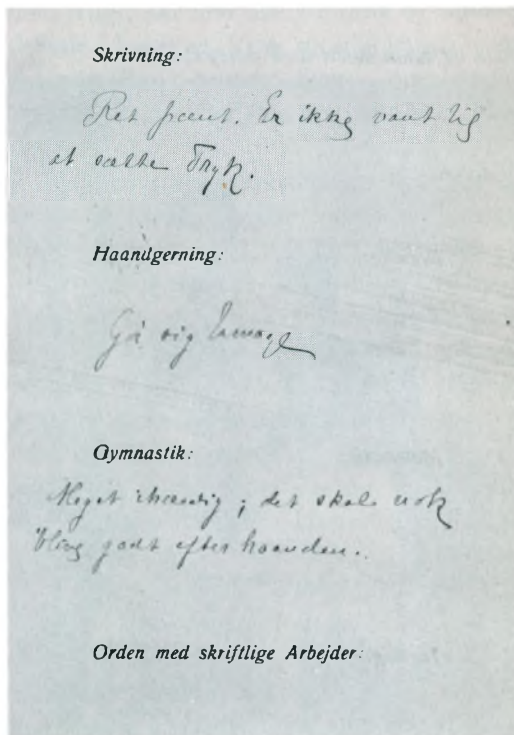 Skrivning:
Ret pænt. Er ikke vant til
at sætte Tryk.
Haandgerning:
Gør sig Umage
Gymnastik:
Meget ihærdig; det skal nok
blive godt efterhaanden.
Orden med skriftlige Arbejder: